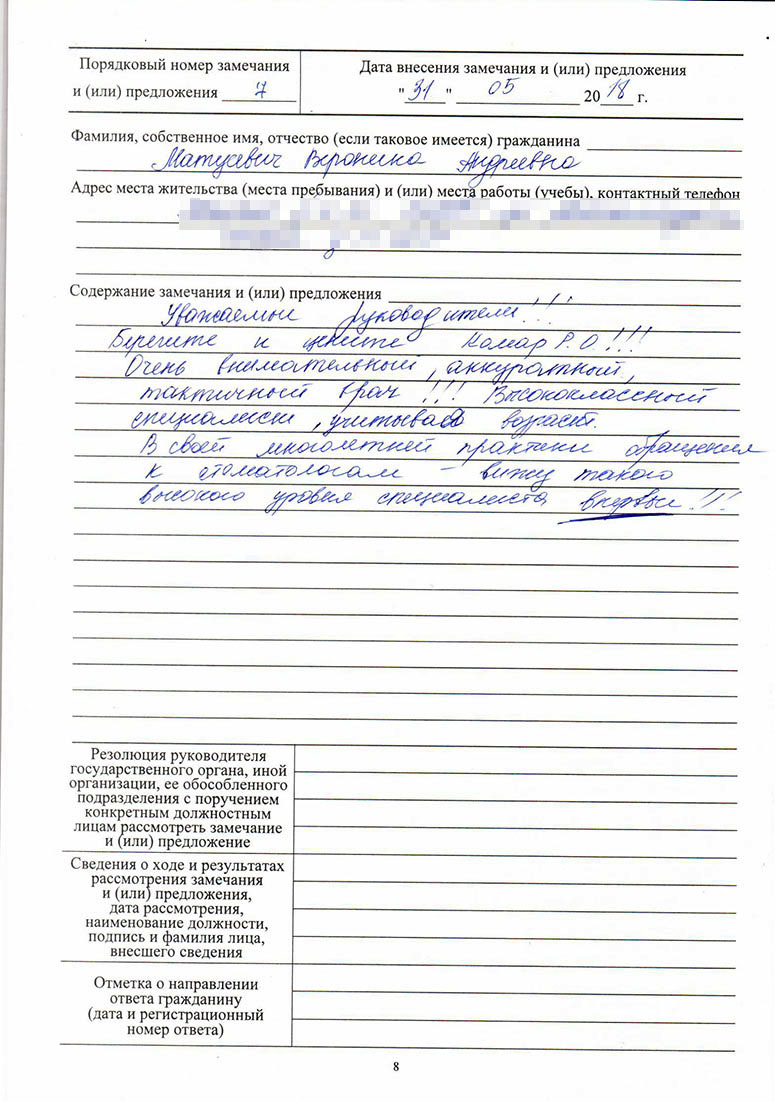 Порядковый номер замечания
и (или) предложения 7
Дата внесения замечания и (или) предложения
"31" 05 2018 г.
Фамилия, собственное имя, отчество (если таковое имеется) гражданина
Матусевич Вероника Андреевна
Адрес места жительства (места пребывания) и (или) места работы (учебы), контактный телефон
Содержание замечания и (или) предложения
Уважаемые руководители!!!
Берегите и цените Комар Р.О.!!!
Очень внимательный, аккуратный,
тактичный врач!!! Высококлассный
специалист, учитывая возраст.
В своей многолетней практики обращения
к стоматологам – вижу такого
высокого уровня специалиста впервые!!!
Резолюция руководителя
государственного органа, иной
организации, ее обособленного
подразделения с поручением
конкретным должностным
лицам рассмотреть замечание
и (или) предложение
Сведения о ходе и результатах
рассмотрения замечания
и (или) предложения,
дата рассмотрения,
наименование должности,
подпись и фамилия лица,
внесшего сведения
Отметка о направлении
ответа гражданину
(дата и регистрационный
номер ответа)
8